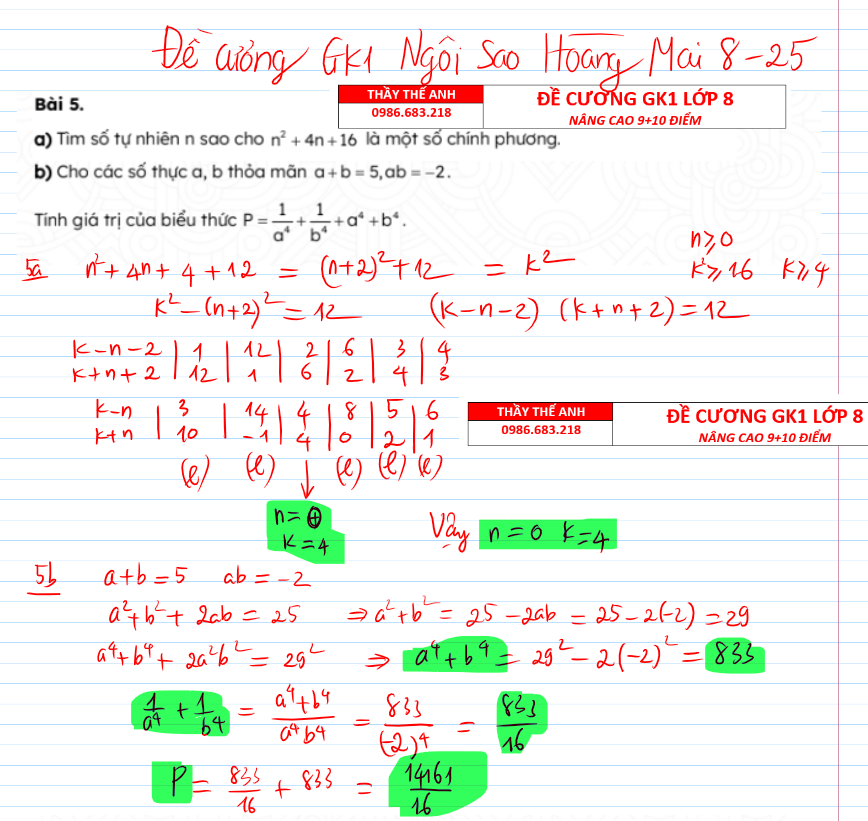 Đề cương GK1 Ngôi Sao Hoàng Mai 8-25
THẦY THẾ ANH
0986.683.218
ĐỀ CƯƠNG GK1 LỚP 8
NÂNG CAO 9+10 ĐIỂM
Bài 5.
a) Tìm số tự nhiên n sao cho n² + 4n + 16 là một số chính phương.
b) Cho các số thực a, b thỏa mãn a + b = 5, ab = −2.
Tính giá trị của biểu thức P = 1/a⁴ + 1/b⁴ + a⁴ + b⁴.
n ≥ 0
5a n² + 4n + 4 + 12 = (n+2)² + 12 = k² k² ≥ 16 k ≥ 4
k² − (n+2)² = 12 (k−n−2) (k+n+2) = 12
k−n−2 | 1 | 12 | 2 | 6 | 3 | 4
k+n+2 | 12 | 1 | 6 | 2 | 4 | 3
k−n | 3 | 14 | 4 | 8 | 5 | 6
k+n | 10 | −1 | 4 | 0 | 2 | 1
(l) (l) ↓ (l) (l) (l)
THẦY THẾ ANH
0986.683.218
ĐỀ CƯƠNG GK1 LỚP 8
NÂNG CAO 9+10 ĐIỂM
n = 0
k = 4
Vậy n = 0 k = 4
5b a+b = 5 ab = −2
a² + b² + 2ab = 25 ⇒ a² + b² = 25 − 2ab = 25 − 2(−2) = 29
a⁴ + b⁴ + 2a²b² = 29² ⇒ a⁴ + b⁴ = 29² − 2(−2)² = 833
1/a⁴ + 1/b⁴ = (a⁴+b⁴)/(a⁴b⁴) = 833/(−2)⁴ = 833/16
P = 833/16 + 833 = 14161/16